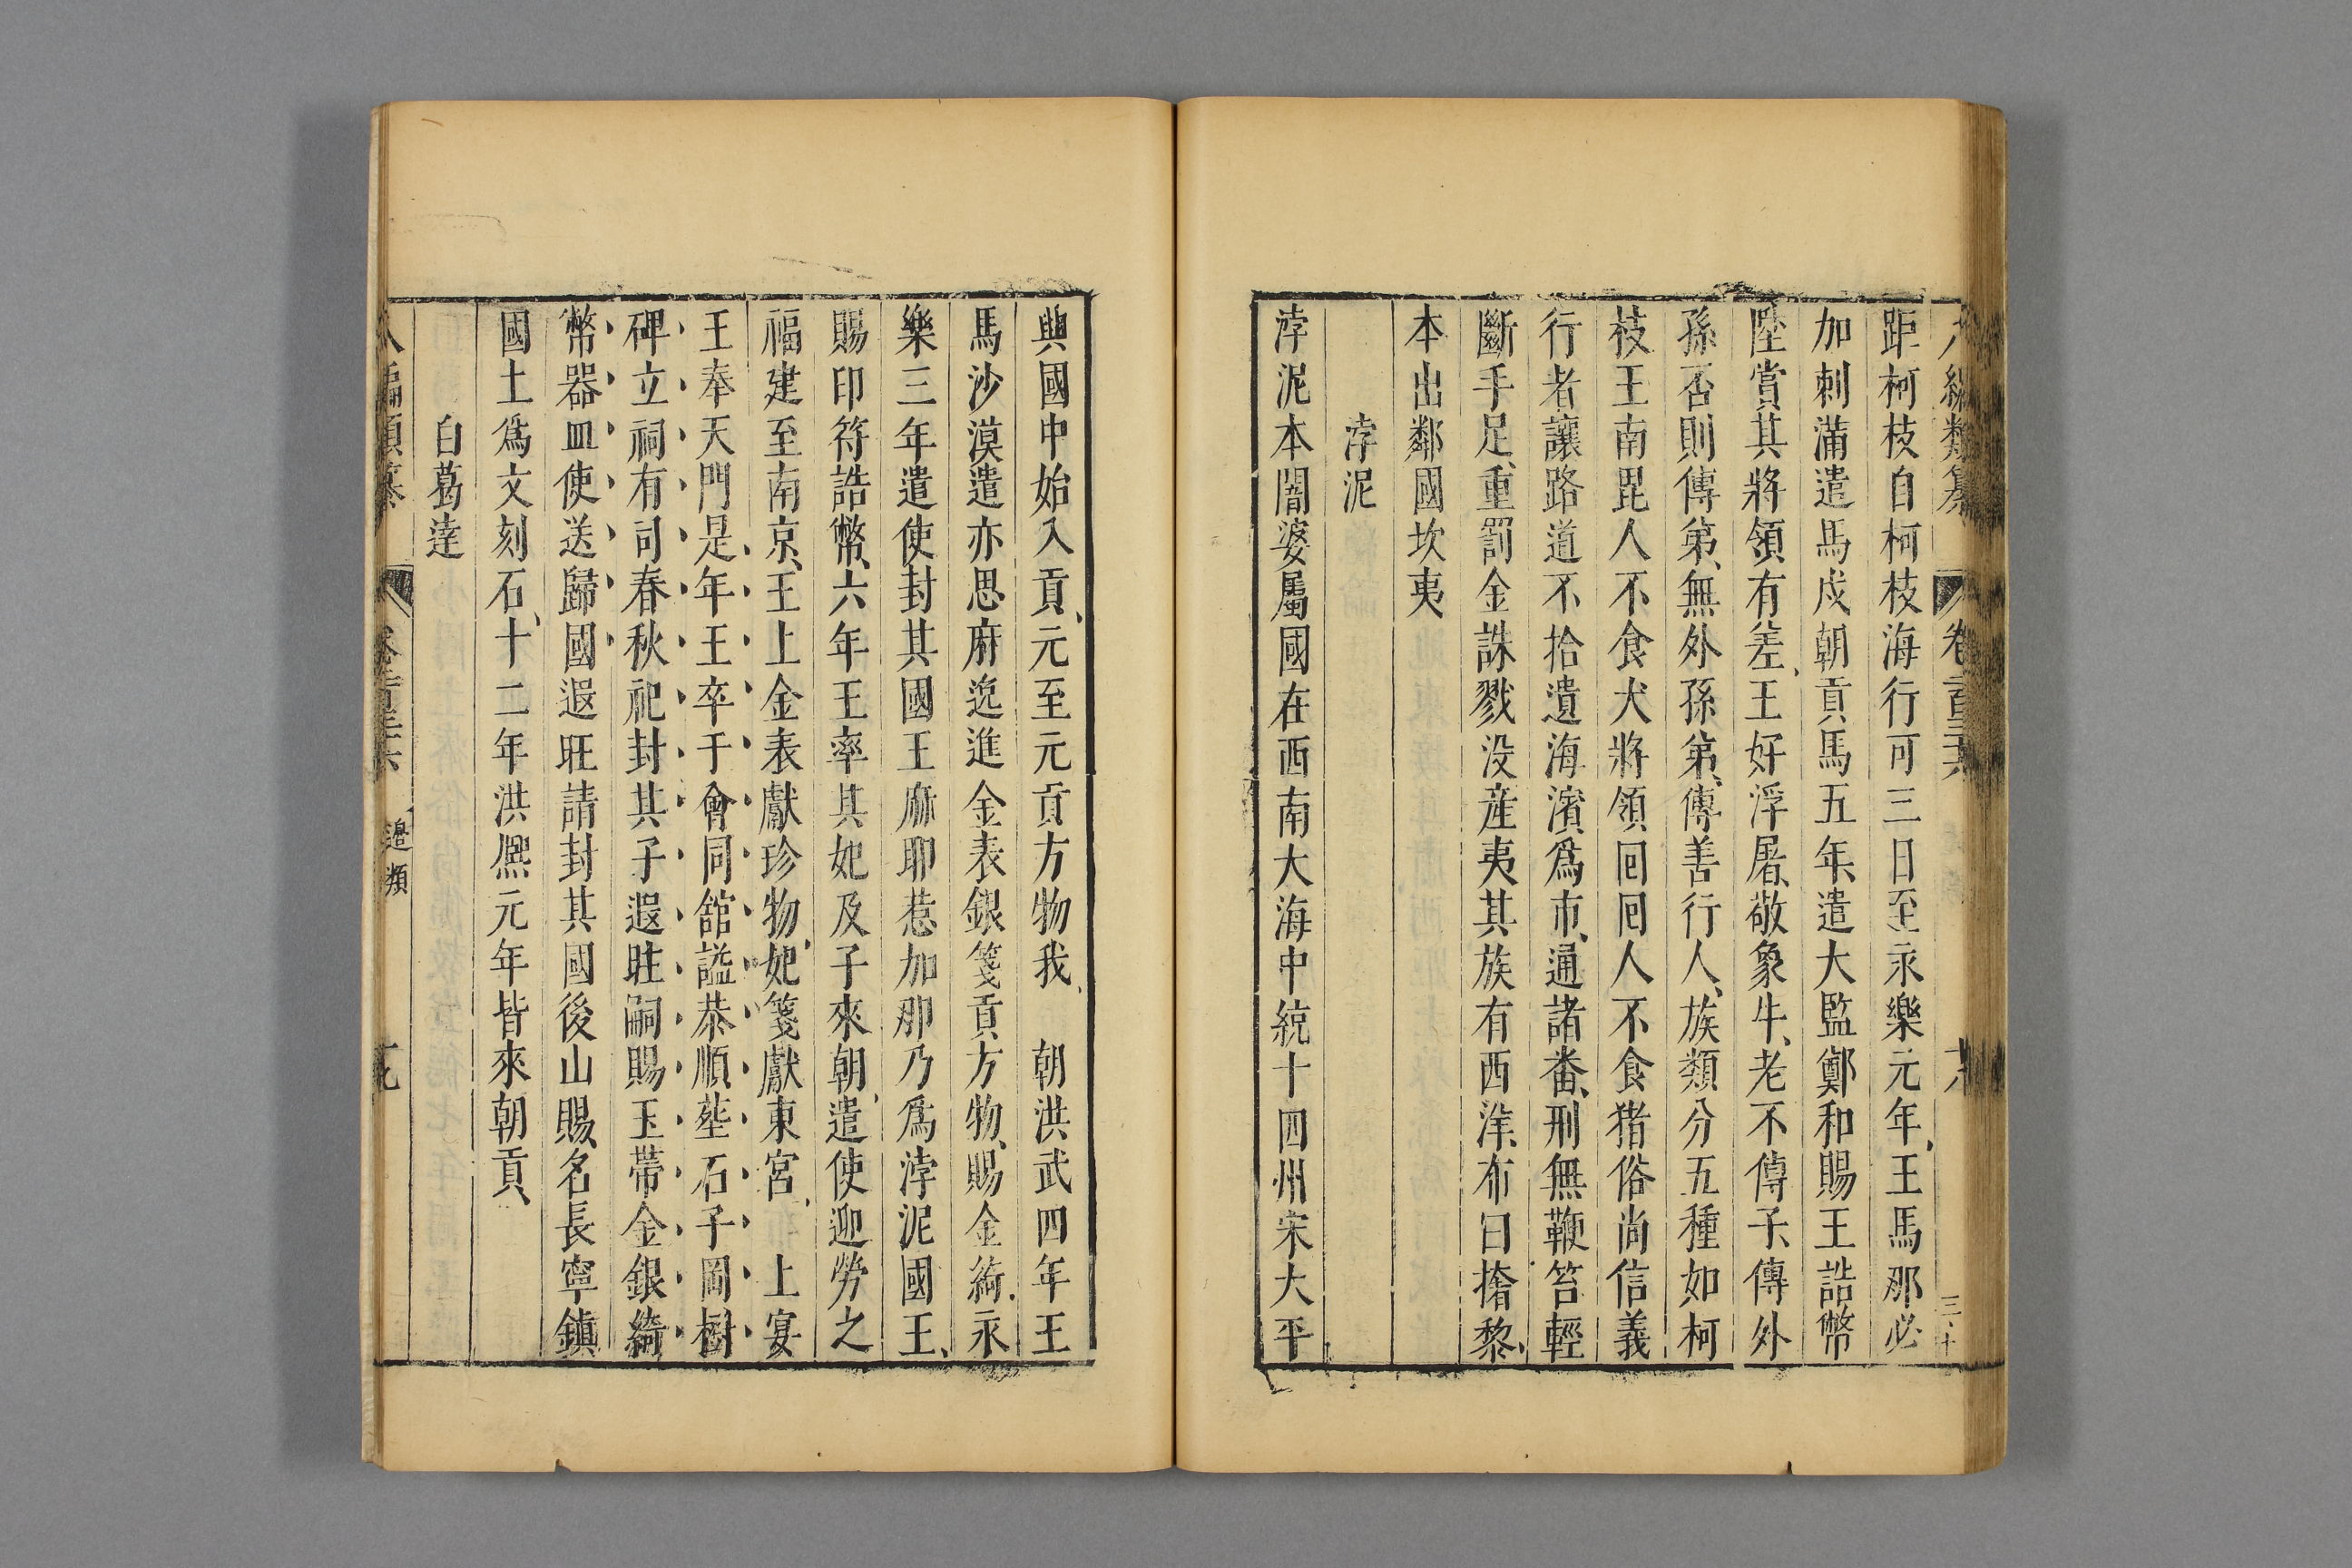 八編類纂 卷二百三十六 十八
距柯枝自柯枝海行可三日至永樂元年王馬那必
加剌滿遣馬戍朝貢馬五年遣大監鄭和賜王誥幣
陞賞其將領有差王好浮屠敬象牛老不傳子傳外
孫否則傳弟無外孫弟傳善行人族類分五種如柯
枝王南毘人不食犬將領囘囘人不食猪俗尚信義
行者讓路道不拾遺海濱爲市通諸畨刑無鞭笞輕
斷手足重罰金誅戮没産夷其族有西洋布曰撦黎
本出鄰國坎夷
浡泥
浡泥本闍婆屬國在西南大海中統十四州宋大平
興國中始入貢元至元貢方物我 朝洪武四年王
馬沙漠遣亦思麻逸進金表銀箋貢方物賜金綺永
樂三年遣使封其國王麻耶惹加那乃爲浡泥國王
賜印符誥幣六年王率其妃及子來朝遣使迎勞之
福建至南京王上金表獻珍物妃箋獻東宮 上宴
王奉天門是年王卒于會同舘謚恭順塟石子岡樹
碑立祠有司春秋祀封其子遐旺嗣賜玉帶金銀綺
幣器皿使送歸國遐旺請封其國後山賜名長寧鎮
國土爲文刻石十二年洪熙元年皆來朝貢
白葛達
八編類纂 卷二百三十六 邊類 十九